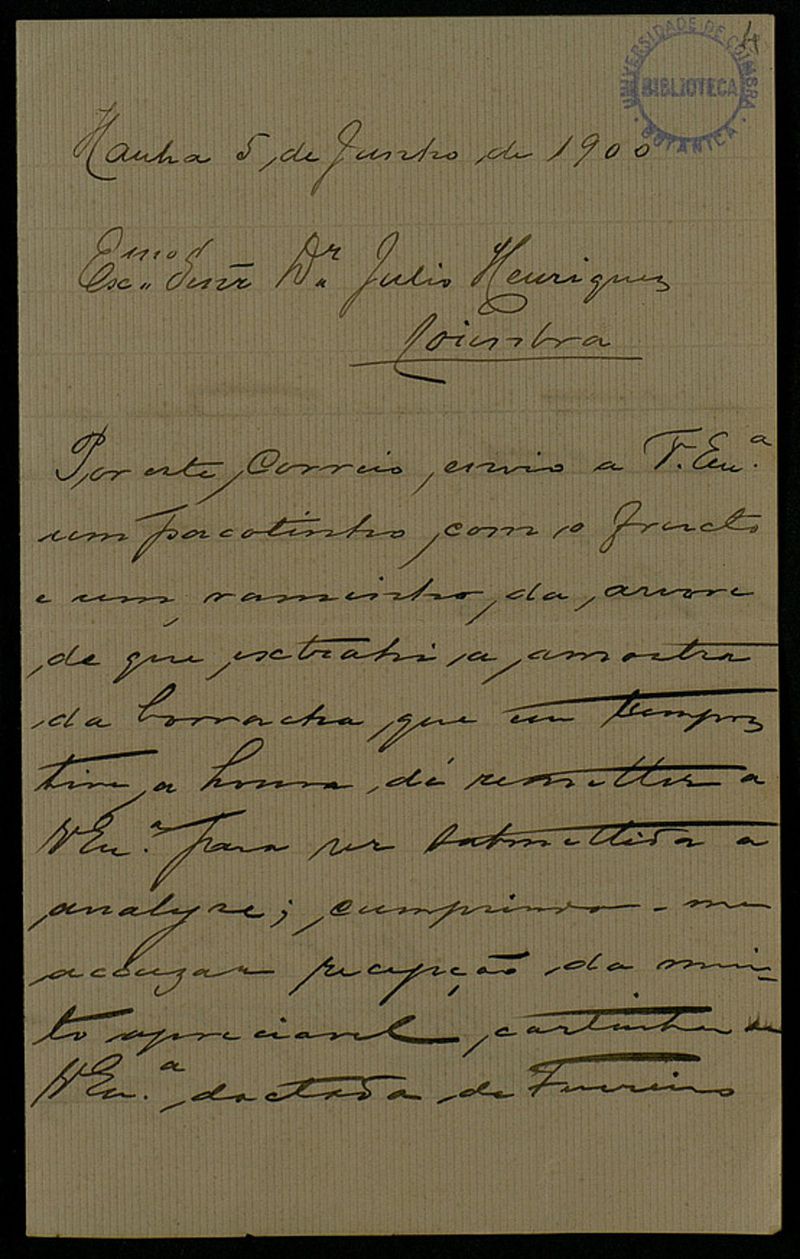 UNIVERSIDADE DE COIMBRA
BIBLIOTECA
BOTANICA
4
Hanha 5 de Junho de 1900
Exmo Senr Dr. Julio Henriques
Coimbra
Por este Correio, envio a V. Exa.
um pacotinho com o fructo
e um raminho da arvore
de que extrahi a amostra
da borracha que em tempos
tive a honra de remetter a
V Exa. para ser submettida a
analyse; cumprindo-me
accuzar recepção da mui-
to apreciavel cartinha de
V Exa. dactada de Fevereiro